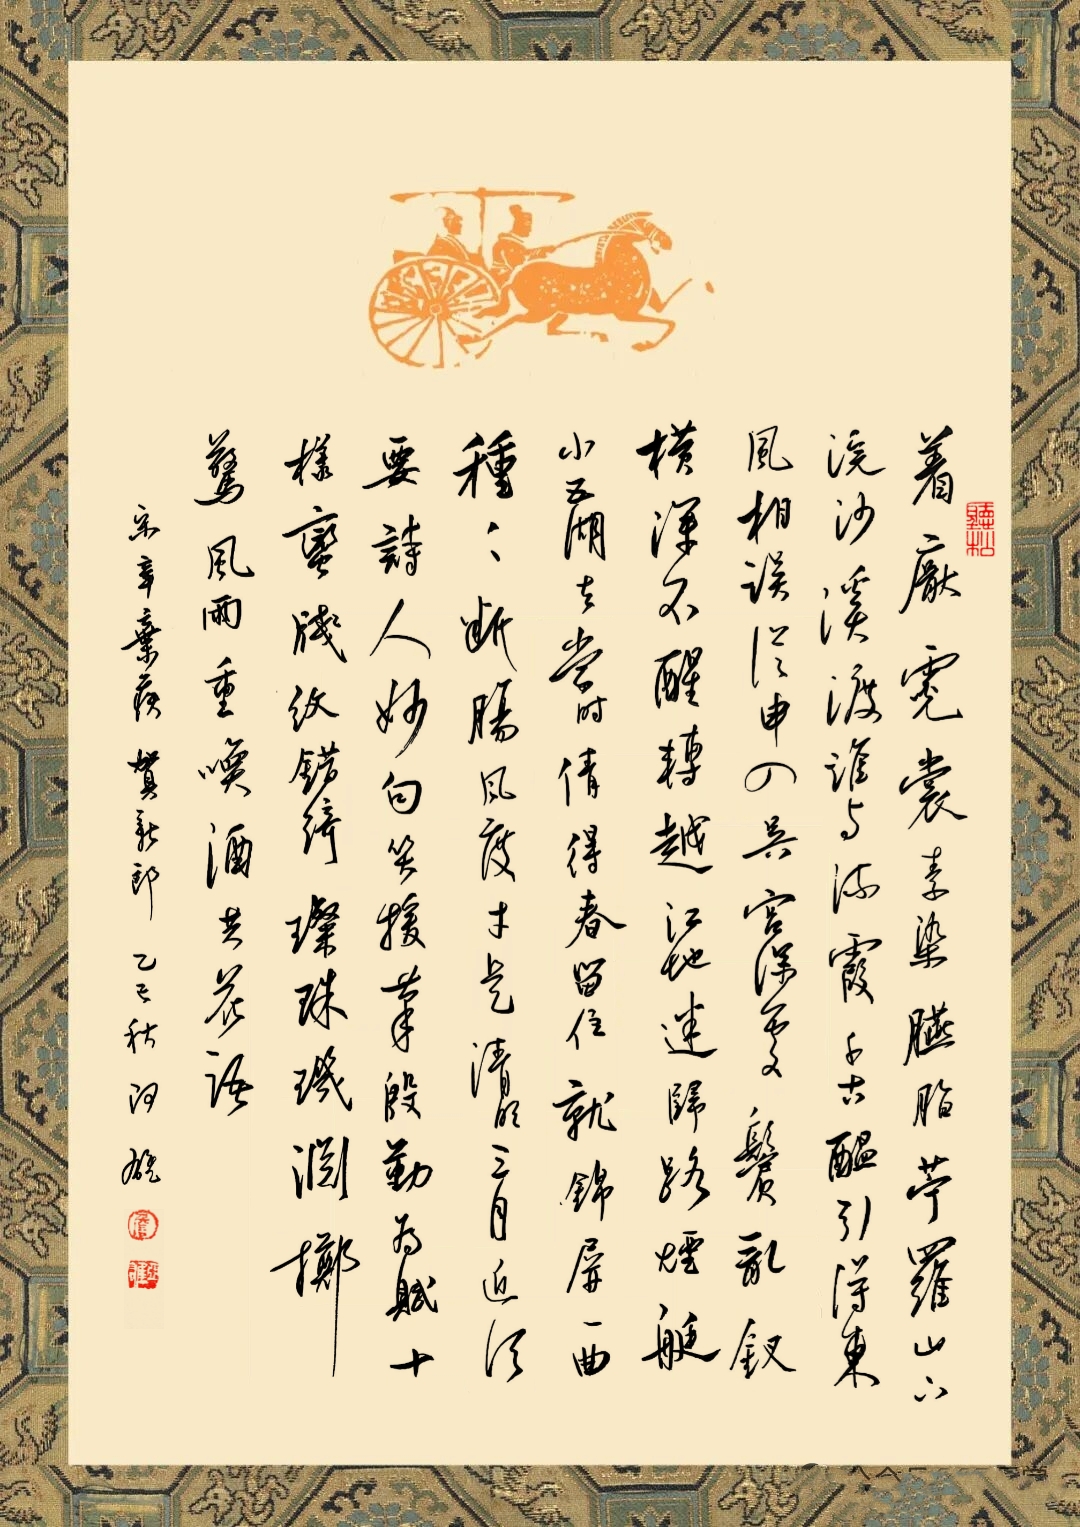 聽松
着厭霓裳素染臙脂苧羅山下
浣沙溪渡誰与流霞千古醖引得東
風相误從申入吴宫深處鬢乱釵
橫渾不醒轉越江地迷歸路煙艇
小五湖去當时倩得春留住就錦屏一曲
種〻断腸風度才是清明三月近須
要詩人妙句笑援筆殷勤为賦十
樣蠻牋纹錯綺璨珠璣淵擲
驚風雨重喚酒共花語
宋辛棄疾賀新郎 乙巳秋